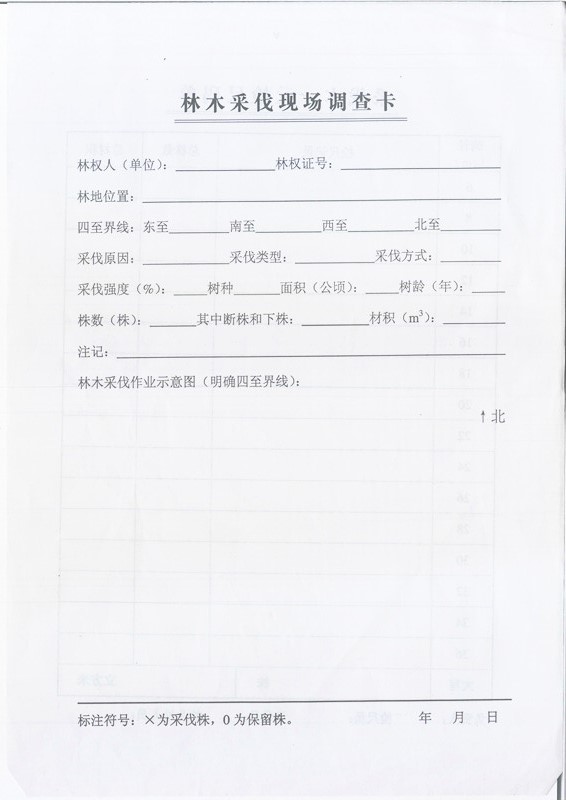 林木采伐现场调查卡
林权人（单位）：__________林权证号：________________
林地位置：____________________________________
四至界线：东至______南至______西至______北至______
采伐原因：________采伐类型：________采伐方式：______
采伐强度（%）：____树种_____面积（公顷）：____树龄（年）：____
株数（株）：_____其中断株和下株：_______材积（m³）：______
注记：______________________________________
林木采伐作业示意图（明确四至界线）：
↑北
标注符号：×为采伐株，0为保留株。 年 月 日